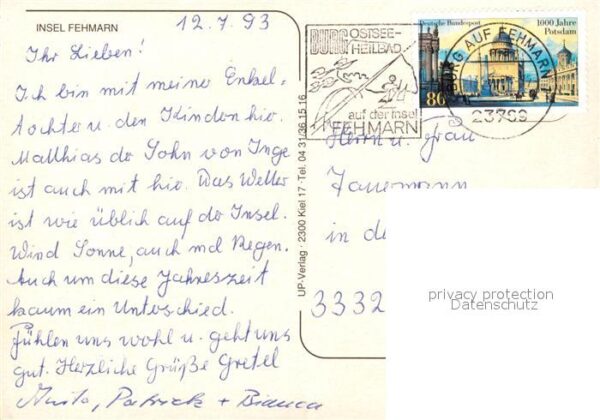 INSEL FEHMARN
12.7.93
Ihr Lieben!
Ich bin mit meiner Enkel-
tochter u. den Kindern hier.
Matthias der Sohn von Inge
ist auch mit hier. Das Wetter
ist wie üblich auf der Insel.
Wind Sonne, auch mal Regen.
Auch um diese Jahreszeit
kaum ein Unterschied.
Fühlen uns wohl u. geht uns
gut. Herzliche Grüße Gretel
Patrick + Bianca
UP-Verlag · 2300 Kiel 17 · Tel. 04 31 36 15 16
BURG OSTSEE-
HEILBAD
auf der Insel
FEHMARN
Deutsche Bundespost
1000 Jahre
Potsdam
80
BURG AUF FEHMARN
23769
Herrn u. Frau
in de
3332
privacy protection
Datenschutz